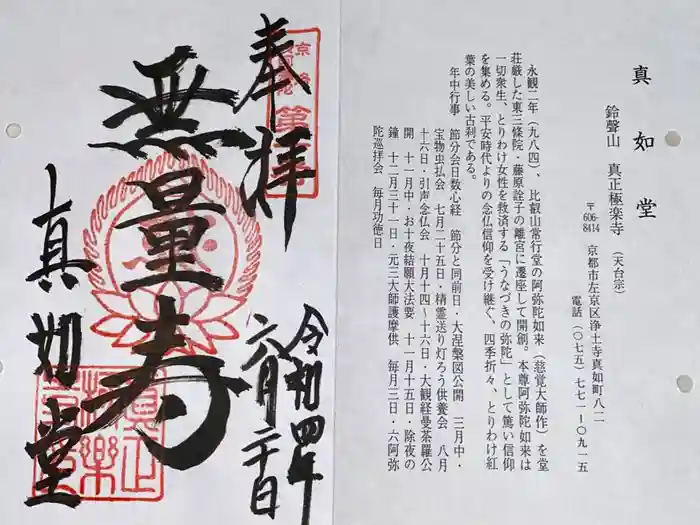 真如堂
鈴聲山　真正極楽寺（天台宗）
〒606-8414　京都市左京区浄土寺真如町八二
電話（〇七五）七七一－〇九一五
永観二年（九八四）、比叡山常行堂の阿弥陀如来（慈覚大師作）を堂
荘厳した東三條院・藤原詮子の離宮に遷座して開創。本尊阿弥陀如来は
一切衆生、とりわけ女性を救済する「うなづきの弥陀」として篤い信仰
を集める。平安時代よりの念仏信仰を受け継ぐ、四季折々、とりわけ紅
葉の美しい古刹である。
年中行事　節分会日数心経　節分と同前日・大涅槃図公開　三月中・
宝物虫払会　七月二十五日・精霊送り灯ろう供養会　八月
十六日・引声念仏会　十月十四～十六日・大観経曼荼羅公
開　十一月中・お十夜結願大法要　十一月十五日・除夜の
鐘　十二月三十一日・元三大師護摩供　毎月三日・六阿弥
陀巡拝会　毎月功徳日
奉拝
令和四年
六月二十日
無量寿
真如堂